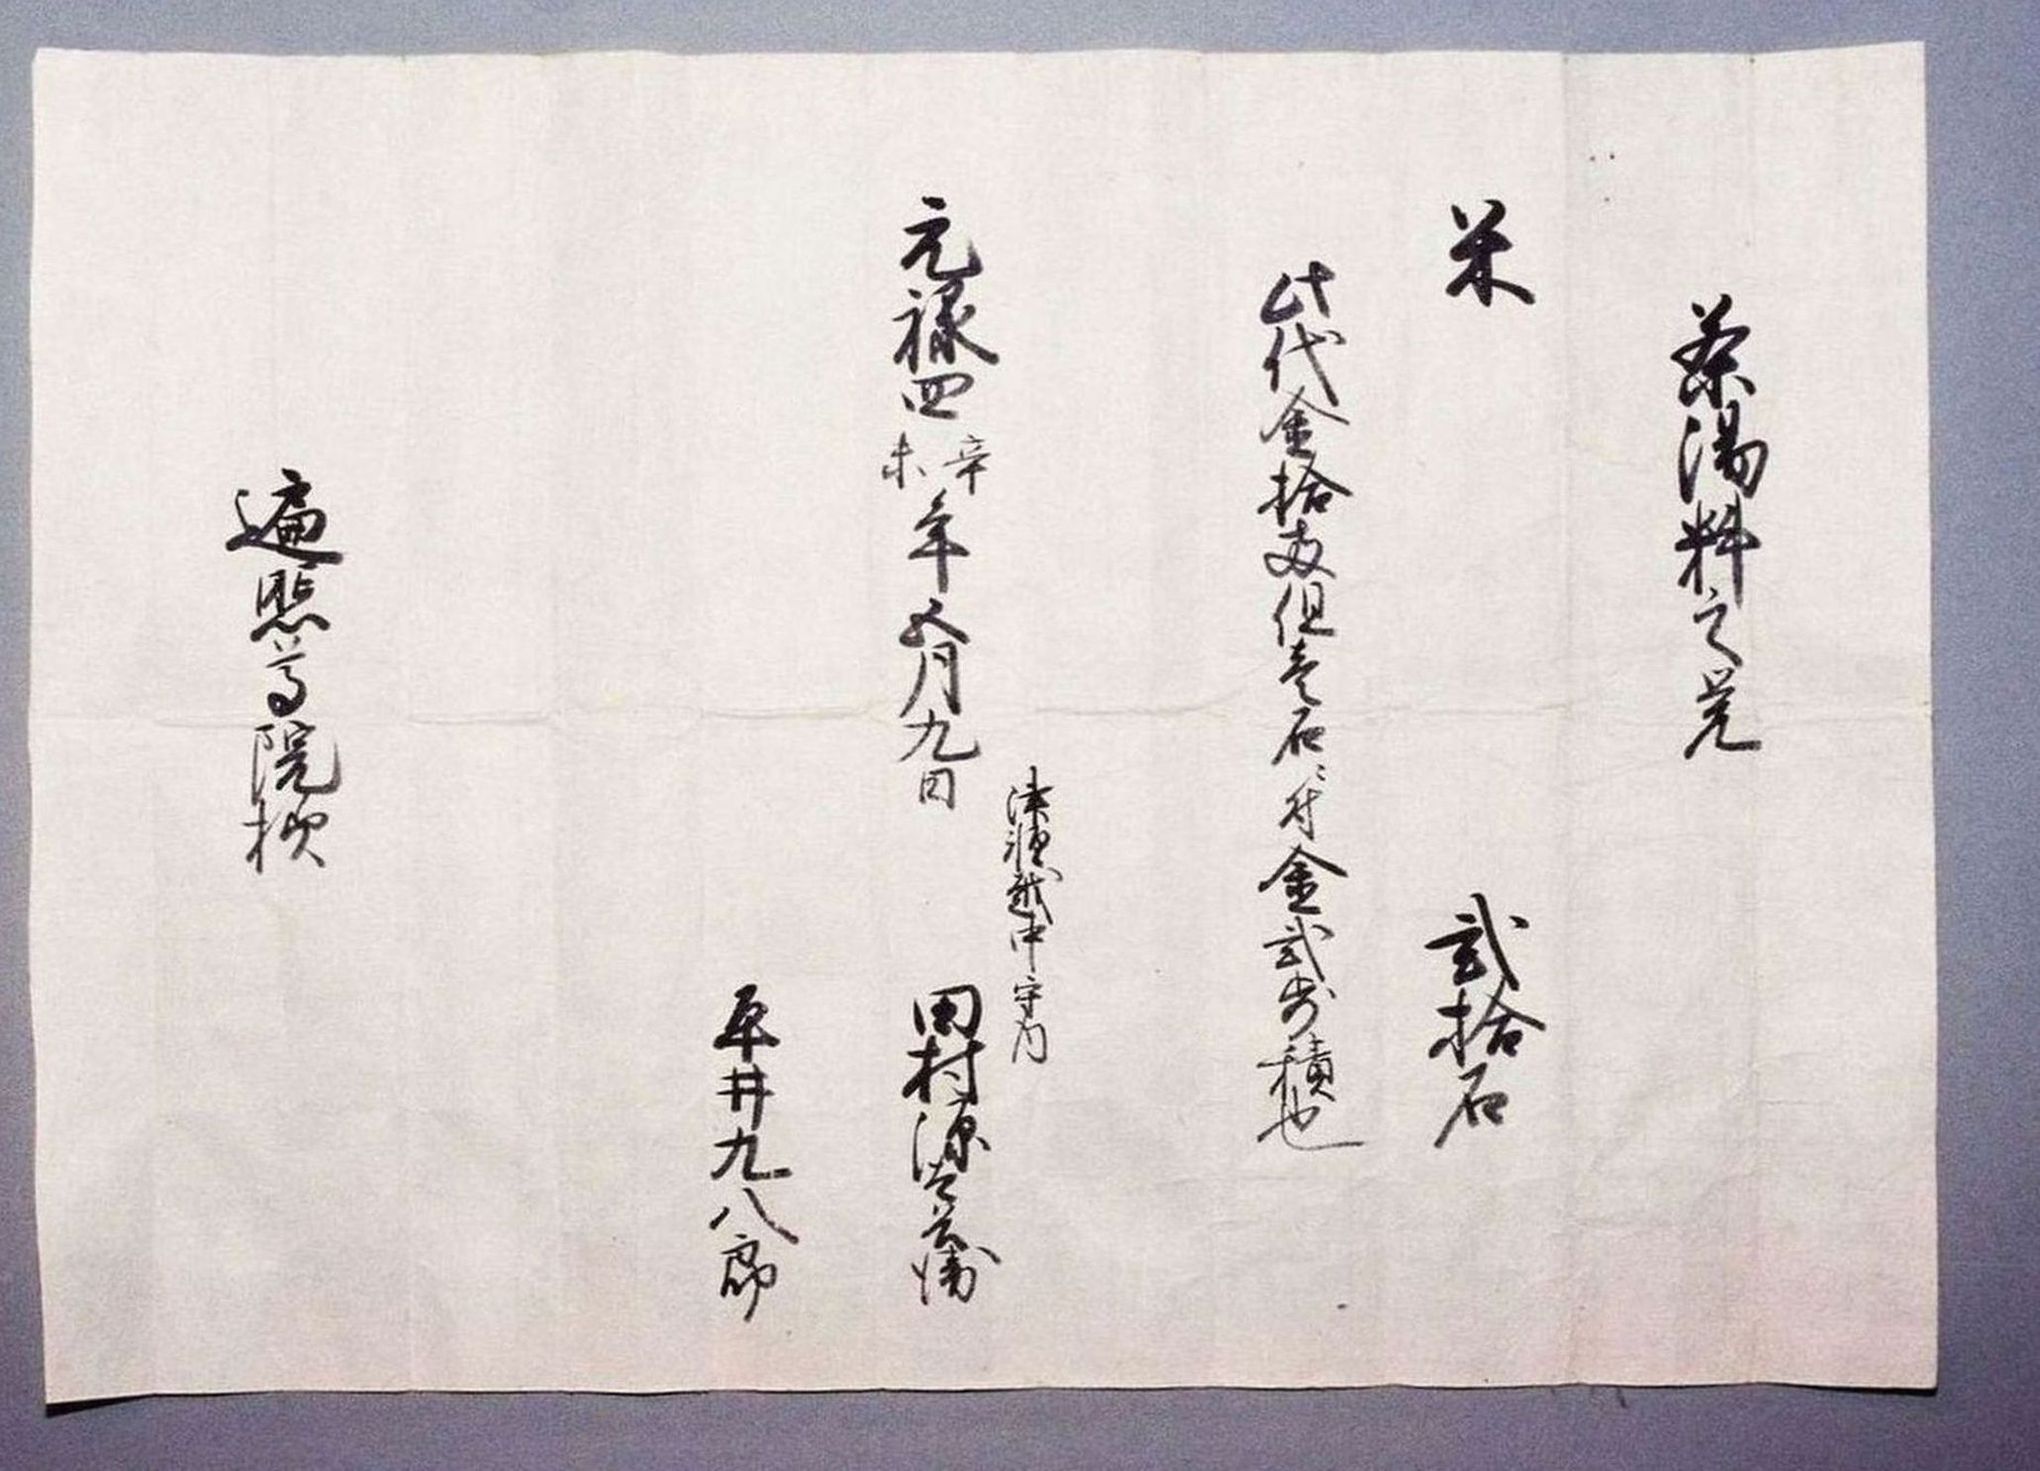 茶湯料之覚
米　弐拾石
此代金拾両但壱石ニ付金弐歩積也
元禄四辛未年五月九日
津軽越中守内
田村源右兵衛
平井九八郎
遍照尊院様